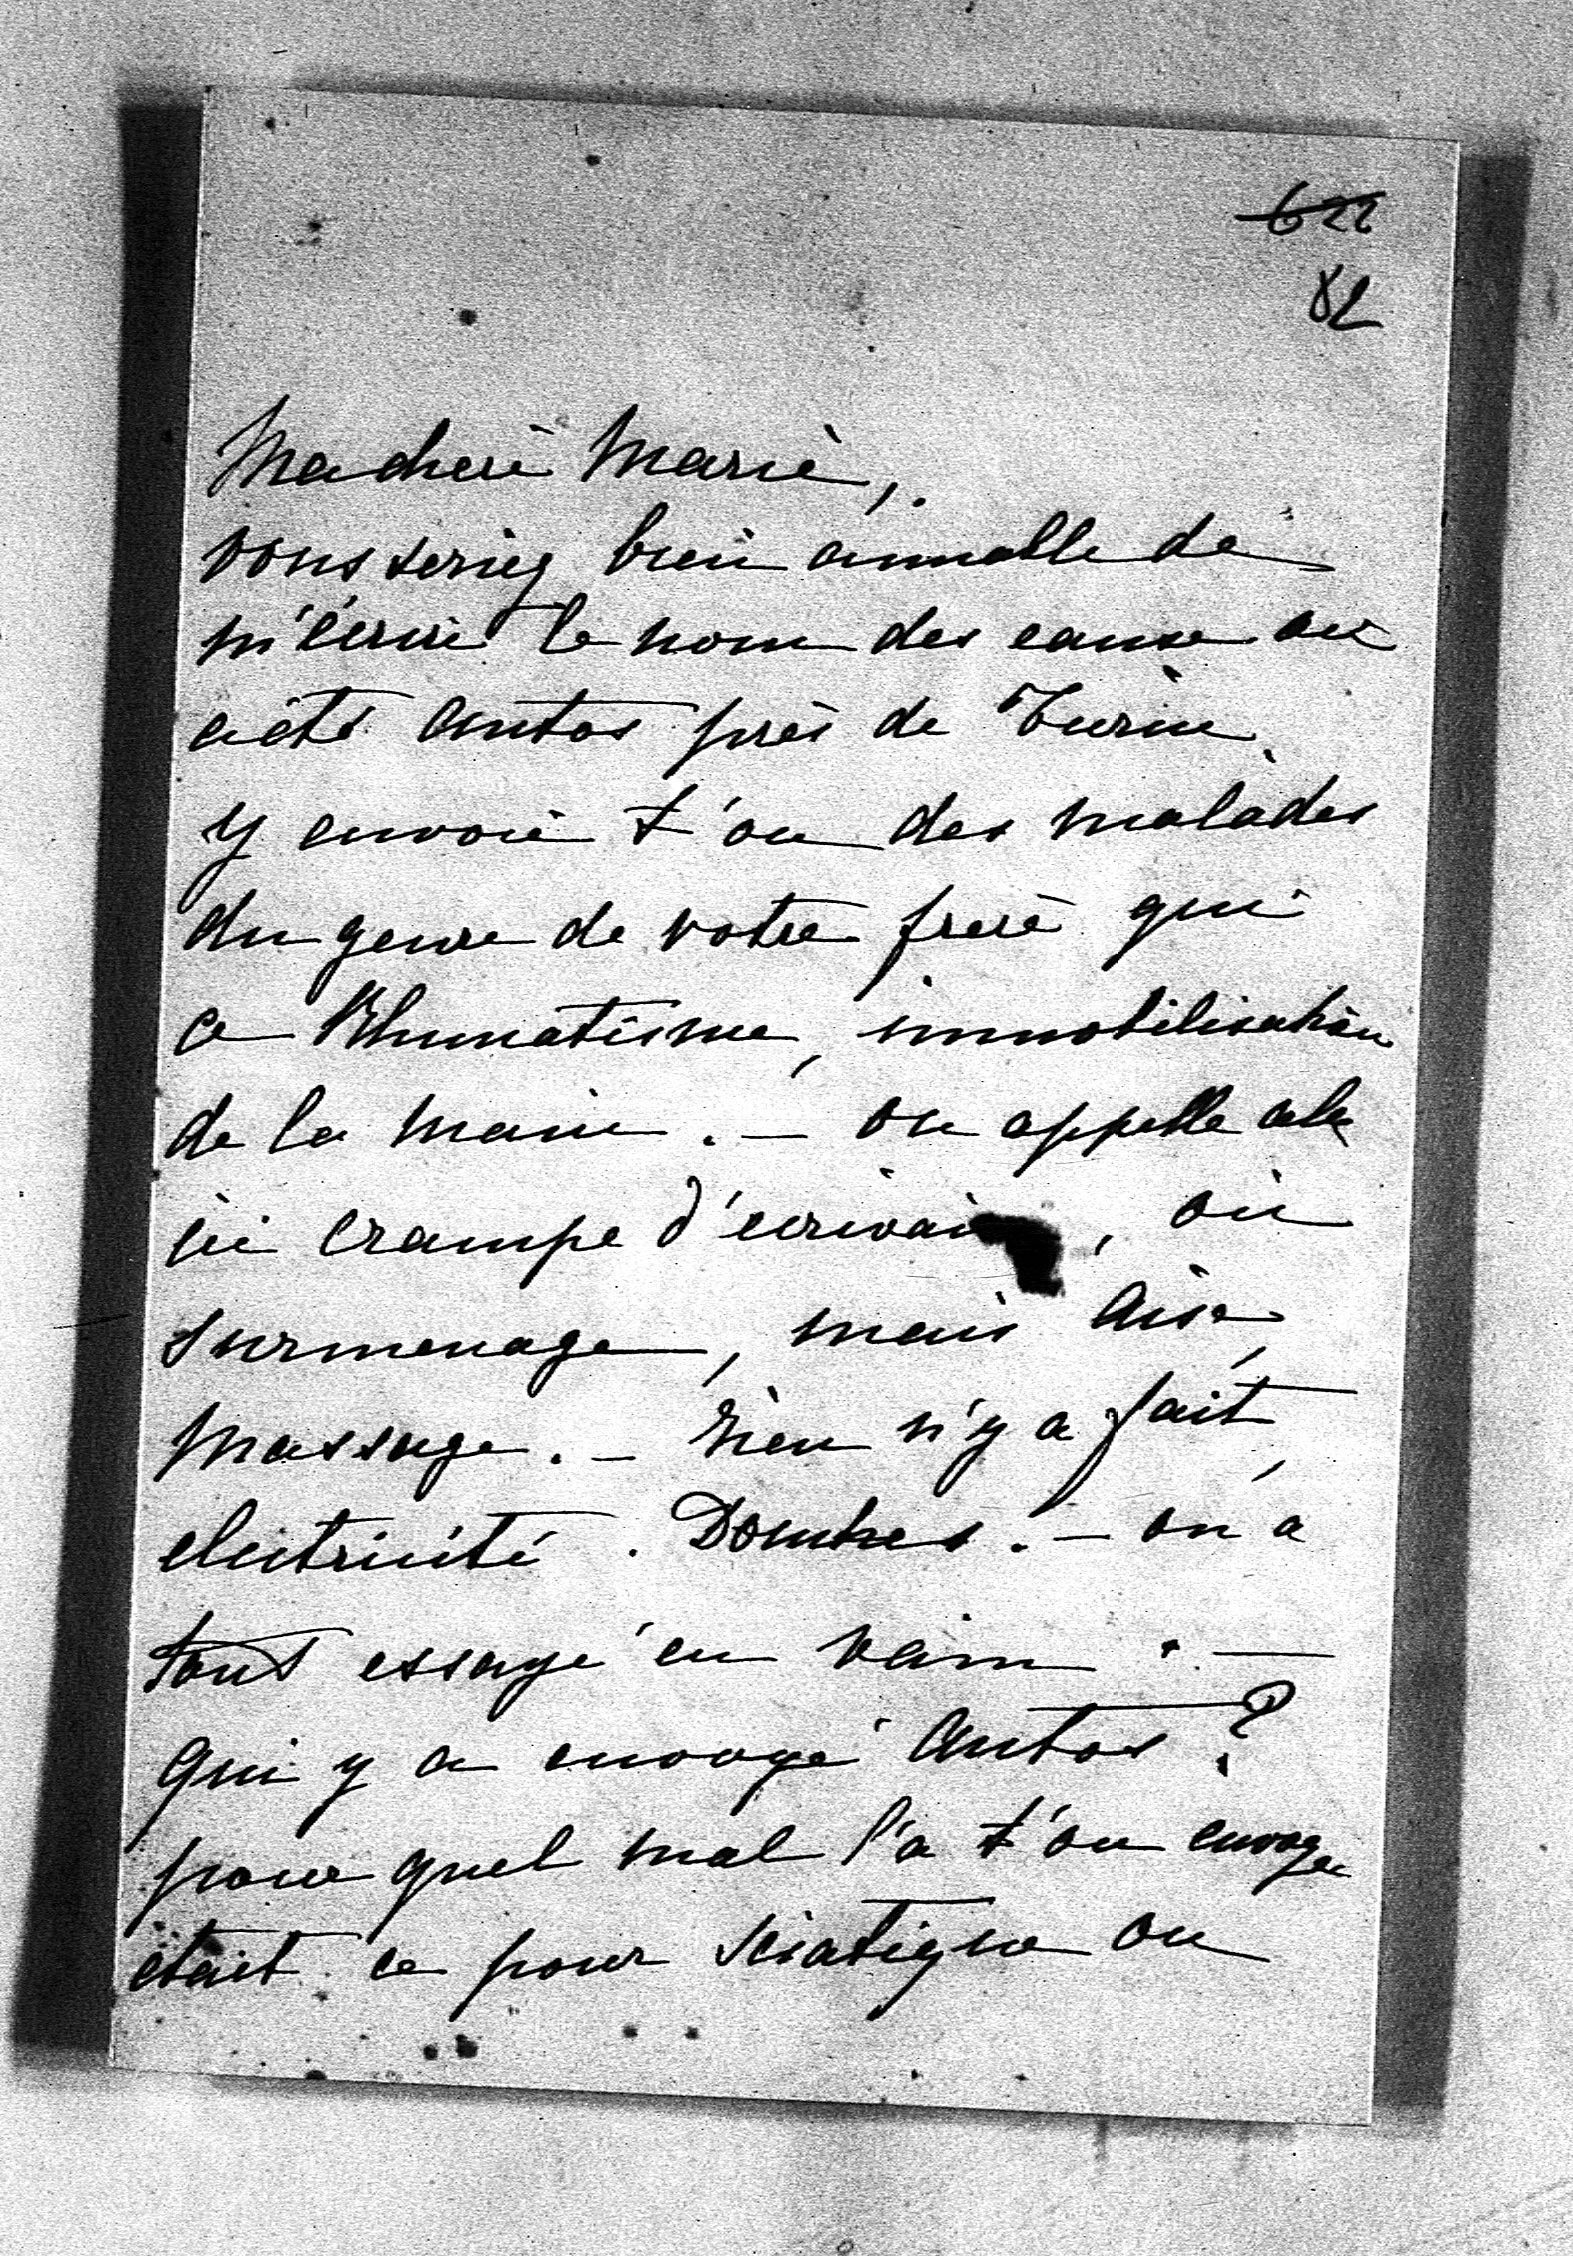 622
82
Ma chere Marie,.
vous seriez bien aimable de
m'écrire le nom des eaux ou
a été Antos près de Turin
y envoie t'on des malades
du genre de votre frere qui
a Rhumatisme, immobilisation
de la main. — on appelle cela
ici crampe d'ecrivain, ou
surmenage, mais Aix,
massage. — rien n'y a fait,
electricité. Douches. — on a
tout essayé en vain. —
qui y a envoyé Antos?
pour quel mal l'a t'on envoyé
etait ce pour sciatique ou